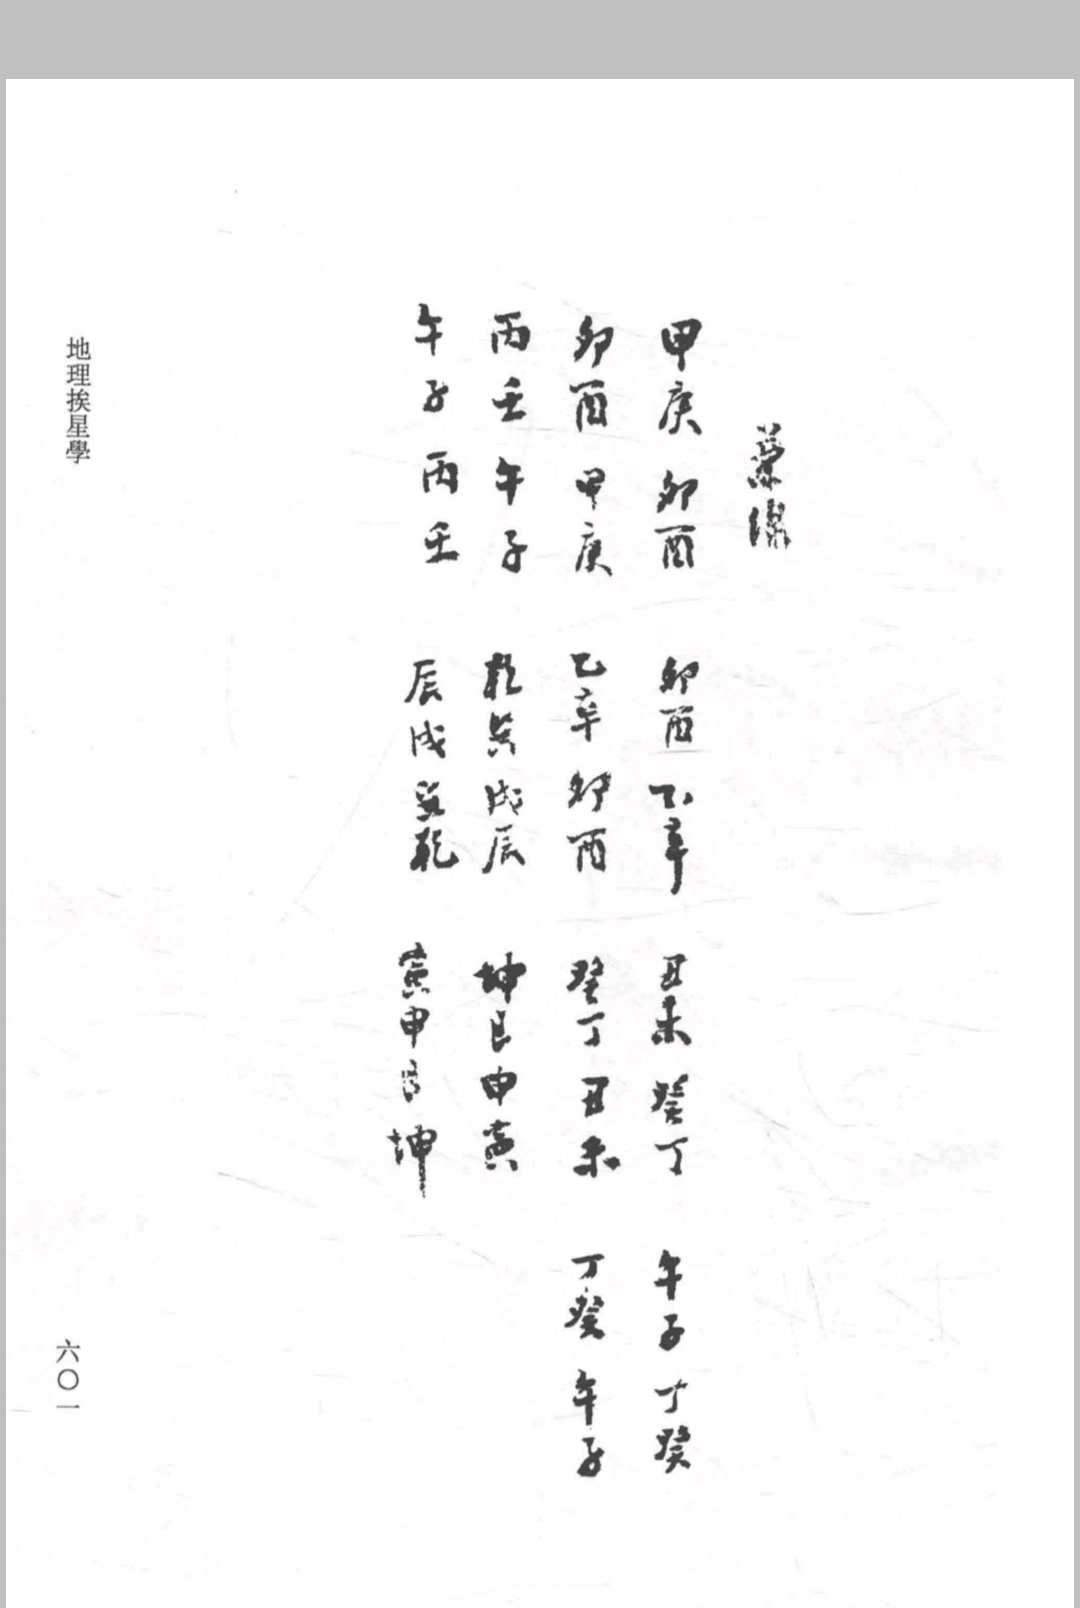 甲庚卯酉 卯酉乙辛 丑未癸丁 午子丁癸
卯酉甲庚 乙辛卯酉 癸丁丑未 丁癸午子
丙壬午子 乾巽戌辰 坤艮申寅
午子丙壬 辰戌巽乾 寅申艮坤
地理挨星學
六〇一